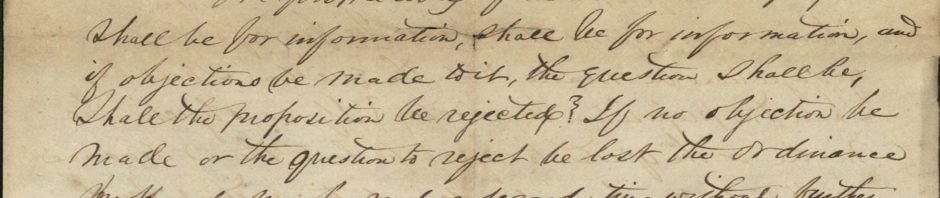 shall be for information, shall be for information, and
if objections be made to it, the question shall be,
Shall the proposition be rejected? If no objection be
made or the question to reject be lost the ordinance
second time without further